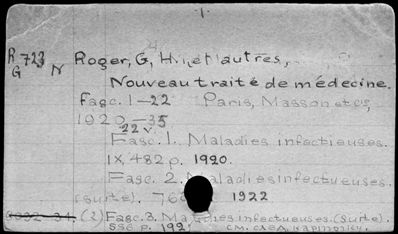 R 723 Roger, G, H., et autres,
G N
Nouveau traité de médecine.
Fasc. 1-22 Paris, Masson et Cie,
1920-35
22 v.
Fasc. 1. Maladies infectieuses.
IX, 482 p. 1920.
Fasc. 2. Maladies infectueuses.
(suite). 1922
(2) Fasc. 3. Maladies infectueuses. (suite).
556 p. 192